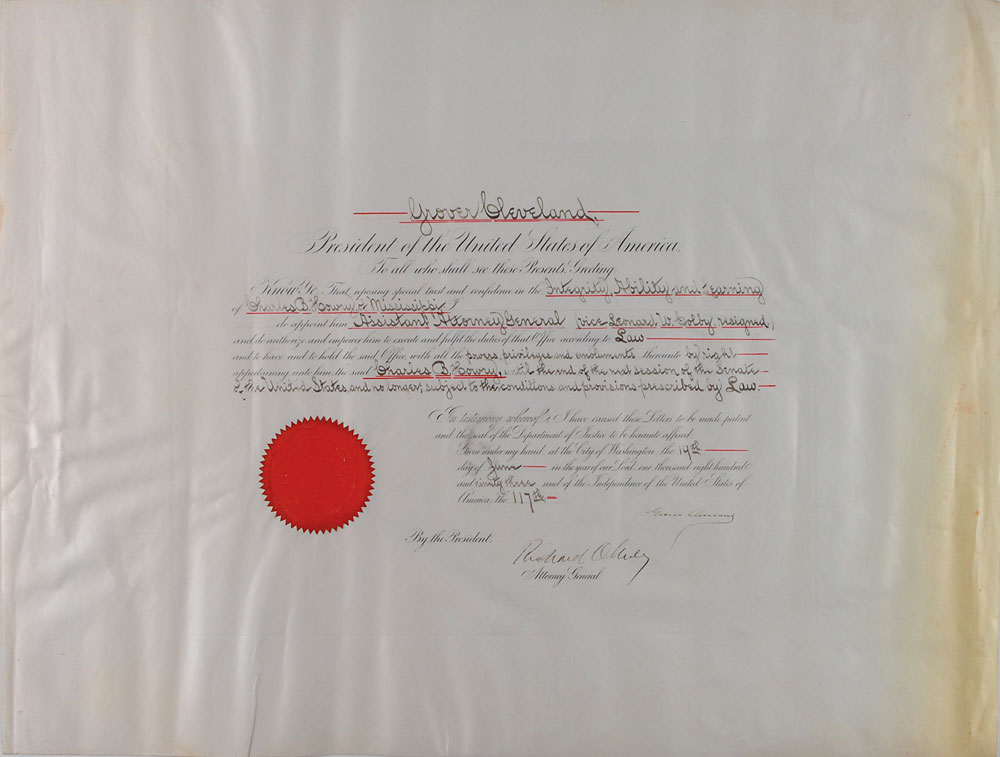 Grover Cleveland,
President of the United States of America.
To all who shall see these Presents, Greeting
Know Ye, That reposing special trust and confidence in the Integrity, Ability and Learning
of Charles B. Howry of Mississippi I
do appoint him Assistant Attorney General (vice Leonard W. Colby, resigned,)
and do authorize and empower him to execute and fulfil the duties of that Office according to Law
and to have and to hold the said Office, with all the powers, privileges and emoluments thereunto by right
appertaining unto him the said Charles B. Howry, until the end of the next session of the Senate
of the United States, and no longer, subject to the conditions and provisions prescribed by Law.
In testimony whereof, I have caused these Letters to be made patent
and the seal of the Department of Justice to be hereunto affixed.
Given under my hand, at the City of Washington, the 19th
day of June in the year of our Lord one thousand eight hundred
and ninety three and of the Independence of the United States of
America, the 117th
Grover Cleveland
By the President:
Richard Olney
Attorney General.